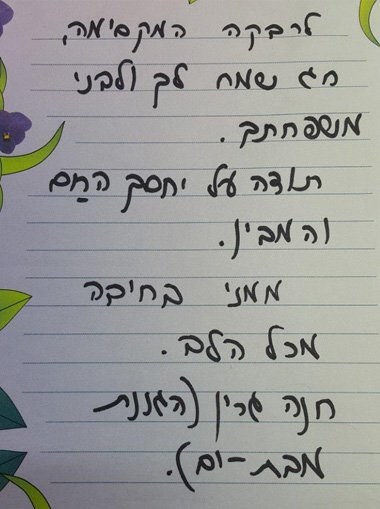 לרבקה המקסימה,
חג שמח לך ולבני
משפחתך.
תודה על יחסך החַם
והמבין.
ממני בחיבה
מכל הלב.
חנה גרין (הגננת
מבת-ים).